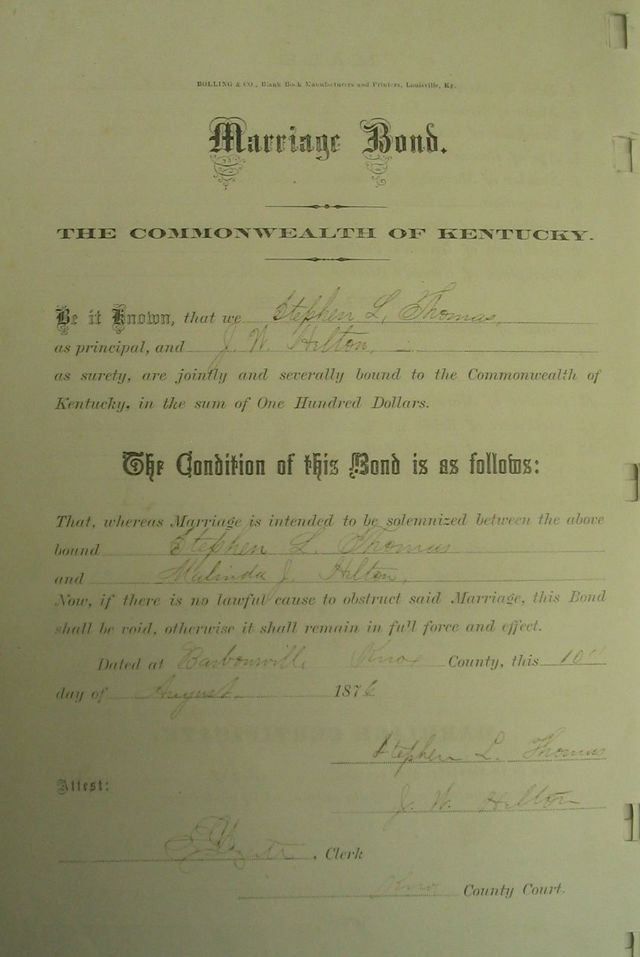 BOLLING & CO., Blank Book Manufacturers and Printers, Louisville, Ky.
Marriage Bond.
THE COMMONWEALTH OF KENTUCKY.
Be it Known, that we Stephen L. Thomas,
as principal, and J. W. Hilton,
as surety, are jointly and severally bound to the Commonwealth of
Kentucky, in the sum of One Hundred Dollars.
The Condition of this Bond is as follows:
That, whereas Marriage is intended to be solemnized between the above
bound Stephen L. Thomas
and Malinda J. Hilton,
Now, if there is no lawful cause to obstruct said Marriage, this Bond
shall be void, otherwise it shall remain in full force and effect.
Dated at Barbourville Knox County, this 10"
day of August 1876
Stephen L. Thomas
Attest:
J. W. Hilton
, Clerk
Knox County Court.